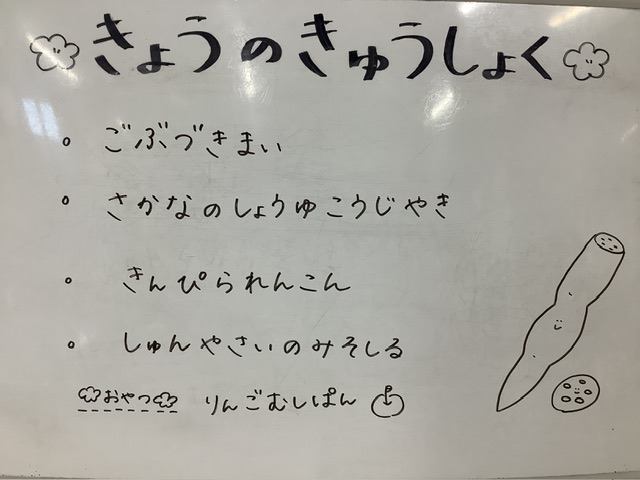 きょうのきゅうしょく
ごぶづきまい
さかなのしょうゆこうじやき
きんぴられんこん
しゅんやさいのみそしる
おやつ りんごむしぱん